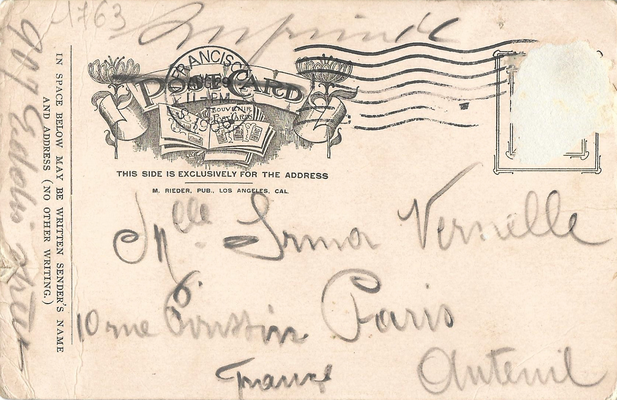 1763 Imprimé
FRANCISCO
11-PM
1905
POST CARD
SOUVENIR
POST CARDS
THIS SIDE IS EXCLUSIVELY FOR THE ADDRESS
M. RIEDER, PUB., LOS ANGELES, CAL.
IN SPACE BELOW MAY BE WRITTEN SENDER'S NAME
AND ADDRESS (NO OTHER WRITING.)
Mlle Irma Vernelle
10 rue Poussin Paris
France Auteuil